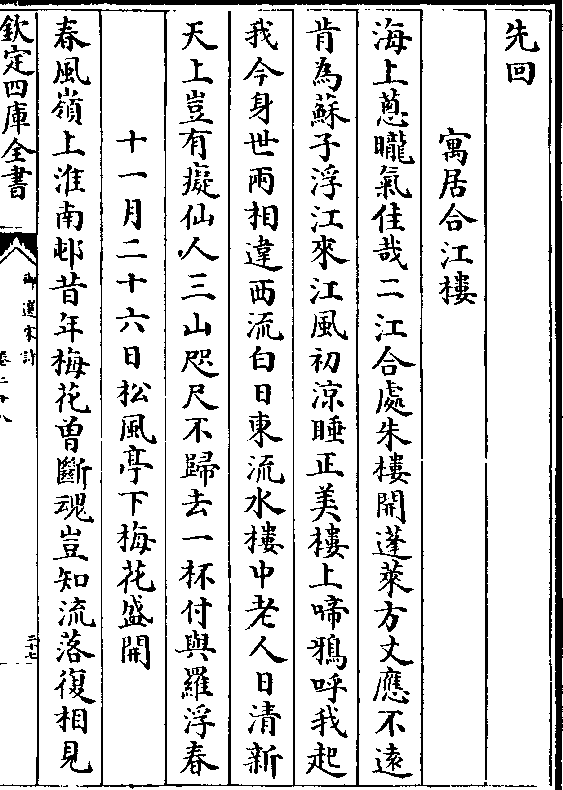 先回
寓居合江樓
海上蔥曨氣佳哉二江合處朱樓開蓬萊方丈應不遠
肯為蘇子浮江來江風初涼睡正美樓上啼鴉呼我起
我今身世兩相違西流白日東流水樓中老人日清新
天上豈有癡仙人三山咫尺不歸去一杯付與羅浮春
十一月二十六日松風亭下梅花盛開
春風嶺上淮南邨昔年梅花曾斷魂豈知流落復相見
欽定四庫全書
御選宋詩
卷二十八
二十七